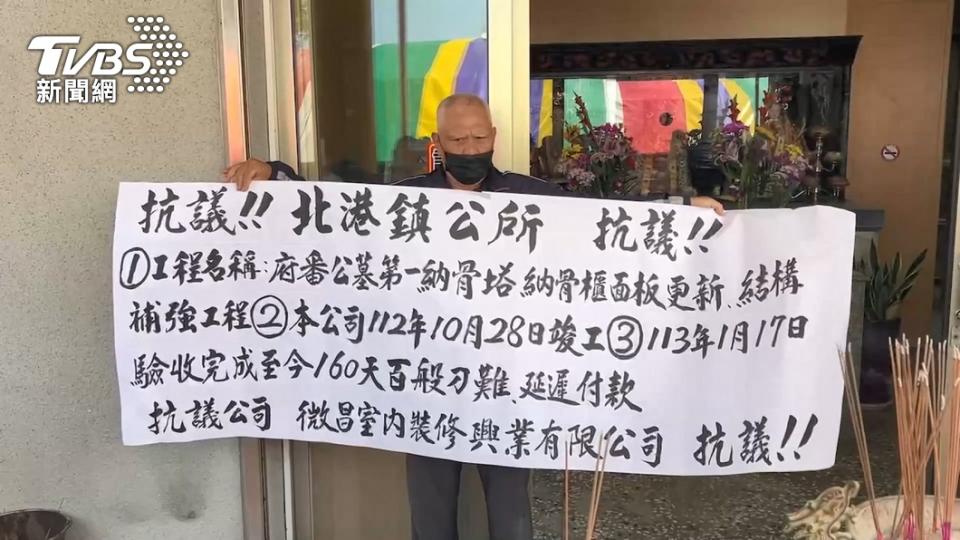 TVBS
新聞網
抗議!! 北港鎮公所 抗議!!
①工程名稱:府番公墓第一納骨塔.納骨櫃面板更新、結構
補強工程②本公司112年10月28日竣工③113年1月17日
驗收完成至今160天百般刁難、延遲付款
抗議公司 微昌室內裝修興業有限公司 抗議!!